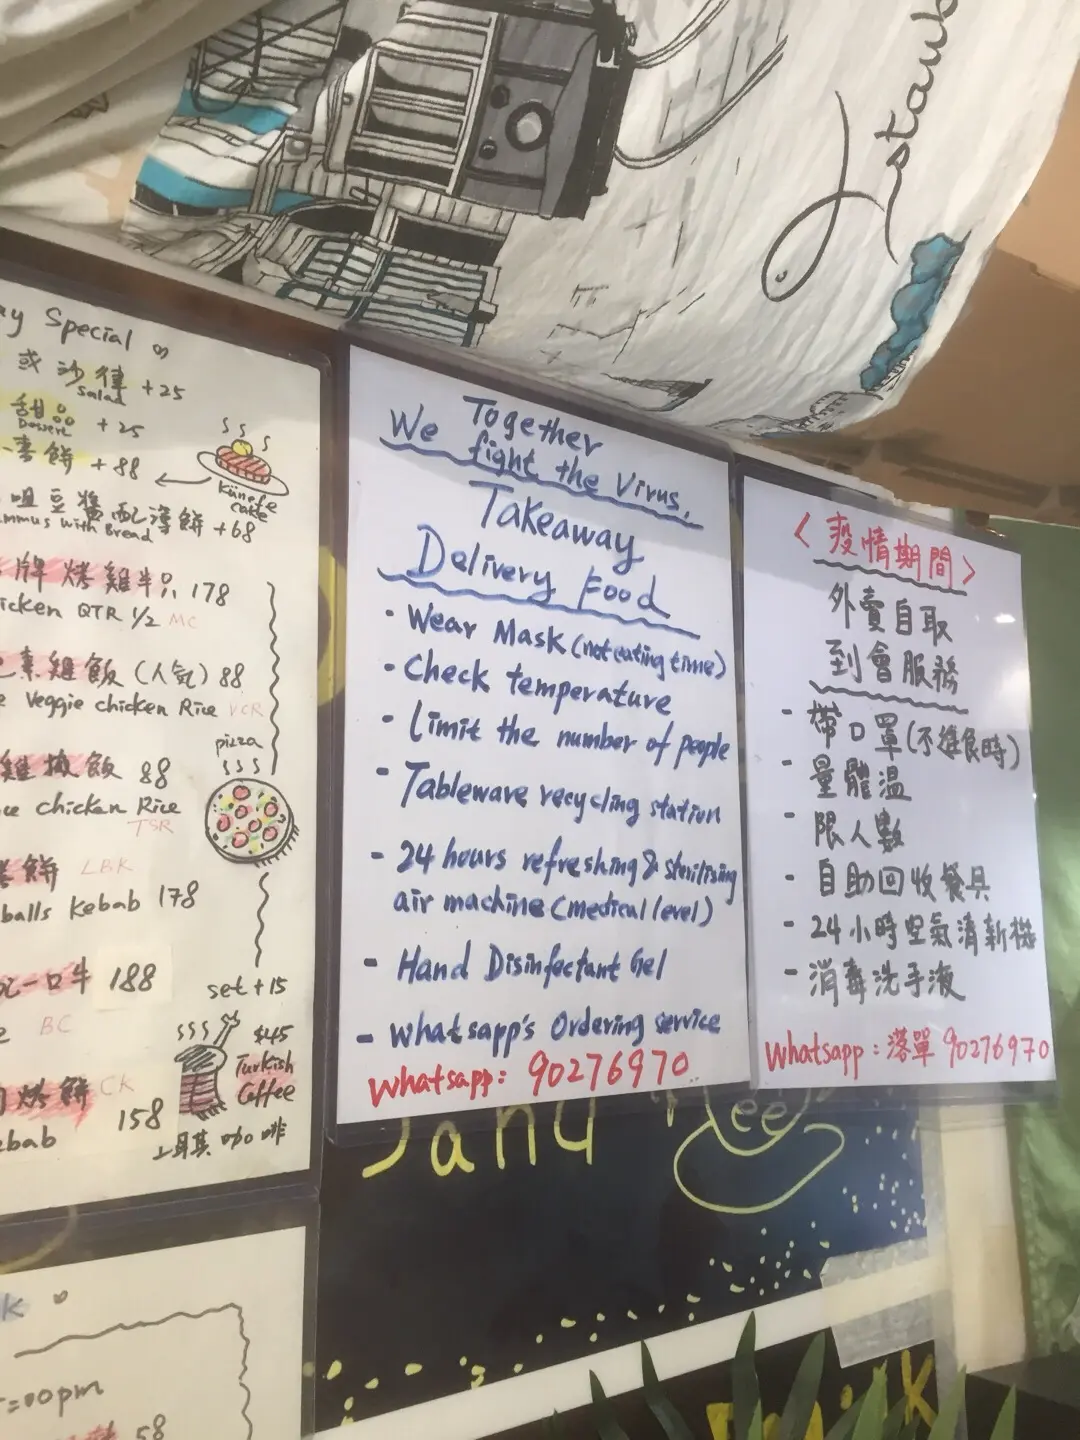 Istanb
ay Special
或 沙律 +25
Salad
甜品 +25
Dessert
餅 +88
Künefe
cake
豆醬配薄餅 +68
ummus with Bread
牌 烤雞半只 178
icken QTR 1/2 MC
素雞飯 (人氣) 88
e Veggie chicken Rice VCR
pizza
飯 88
ce chicken Rice
TSR
餅 LBK
balls Kebab 178
一口牛 188
set +15
BC
$45
Turkish
Coffee
烤餅 CK
ebab 158
土耳其咖啡
Together
We fight the Virus.
Takeaway
Delivery Food
· Wear Mask (not eating time)
· Check temperature
· limit the number of people
· Tableware recycling station
- 24 hours refreshing & sterilising
air machine (medical level)
- Hand Disinfectant Gel
- whatsapp's Ordering service
Whatsapp: 90276970
<疫情期間>
外賣自取
到會服務
- 帶口罩(不進食時)
- 量體温
- 限人數
- 自助回收餐具
- 24小時空氣清新機
- 消毒洗手液
Whatsapp: 落單 90276970
:00pm
58